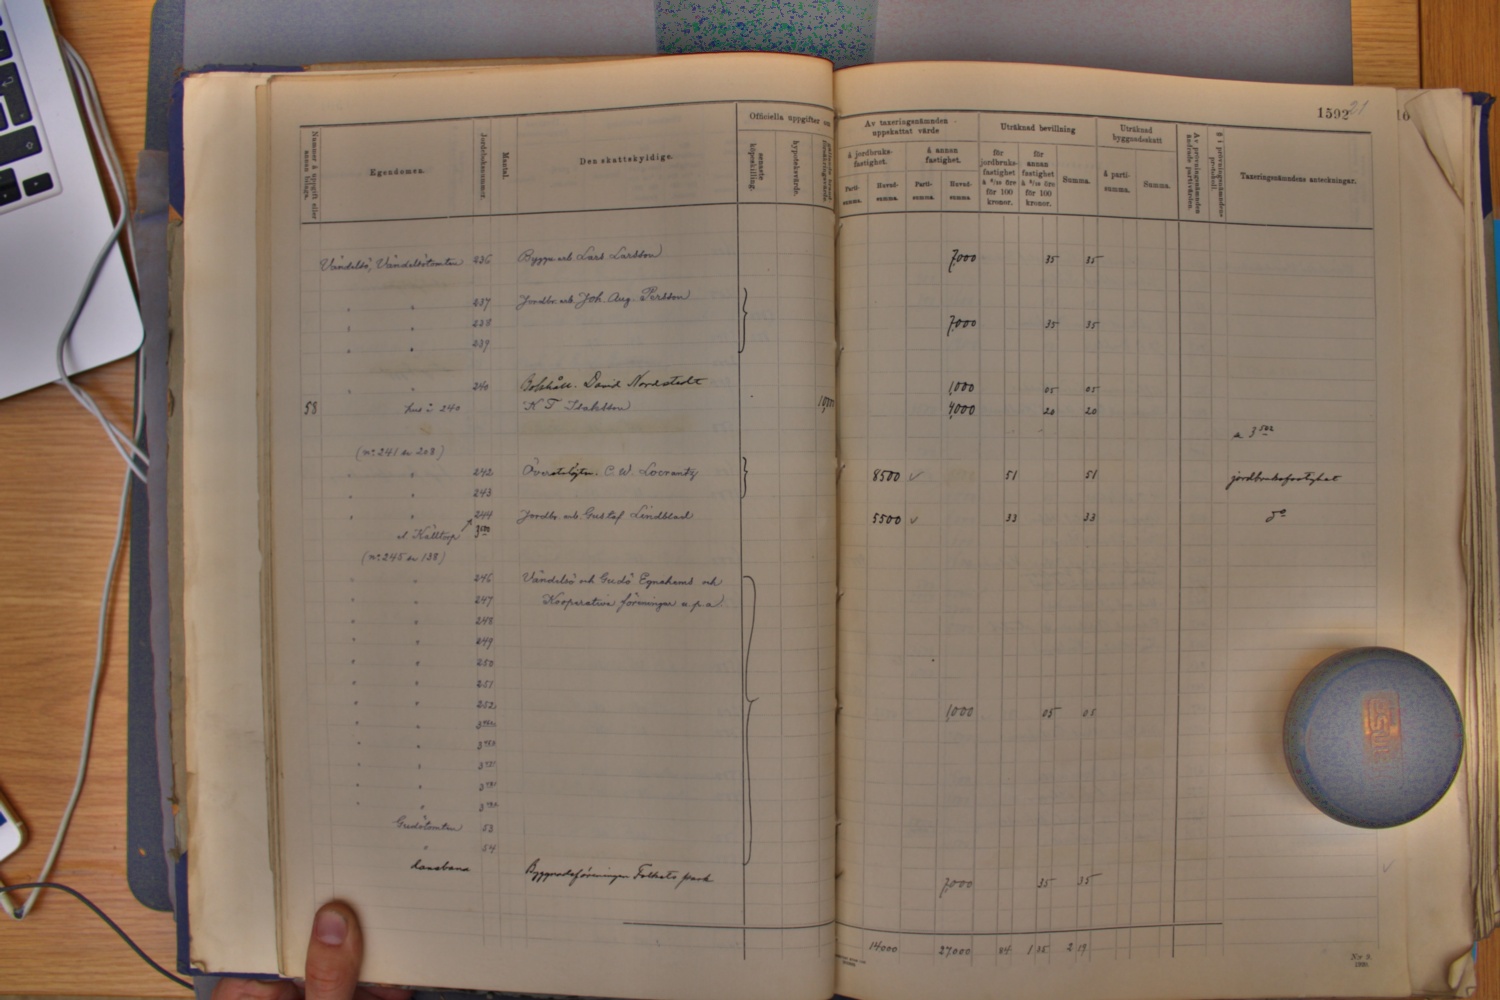 1592 21
Nummer å uppgift eller annan bilaga.
Egendomen.
Jordeboksnummer.
Mantal.
Den skattskyldige.
Officiella uppgifter om
senaste köpeskilling.
hypoteksvärde.
Av taxeringsnämnden uppskattat värde
å jordbruksfastighet.
å annan fastighet.
Partisumma.
Huvudsumma.
Partisumma.
Huvudsumma.
Uträknad bevillning
för jordbruksfastighet à 6/10 öre för 100 kronor.
för annan fastighet à 5/10 öre för 100 kronor.
Summa.
Uträknad byggnadsskatt
å partisumma.
Summa.
Av prövningsnämnden ändrade partivärden.
§ i prövningsnämndens protokoll.
Taxeringsnämndens anteckningar.
Vändelsö, Vändelsötomten 236 Byggn.arb. Lars Larsson 7,000 35 35
" " 237 Jordbr.arb. Joh. Aug. Persson
" " 238 7,000 35 35
" " 239
" 240 David Nordstedt 1,000 05 05
58 hus å 240 K F Isaksson 4,000 20 20
a 3 502
(nr 241 se 208)
" " 242 Överstelöjtn. C. W. 8500 51 51 jordbruksfastighet
" " 243
" " 244 Jordbr.arb. Gustaf Lindblad 5500 33 33 do
(nr 245 se 138)
" " 246 Vändelsö och Gudö Egnahems och
" " 247 Kooperativa föreningen u.p.a.
" " 248
" " 249
" " 250
" " 251
" " 252 1,000 05 05
Gudötomten 53
" 54
dansbana Byggnadsföreningen Folkets park 7,000 35 35
14000 27,000 84 1 35 2 19
Nr 9.